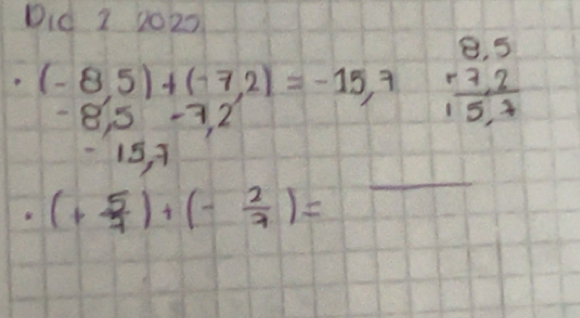 Dic 2 2020
• (-8,5)+(-7,2) = -15,7
-8,5 -7,2
- 15,7
8,5
+7,2
15,7
• (+ 5/7)+(- 2/7)=